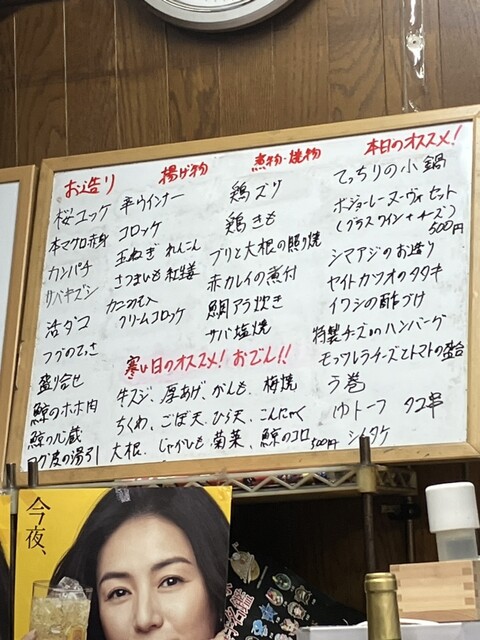 お造り
桜ユッケ
本マグロ赤身
カンパチ
サバキズシ
活ダコ
フグのてっさ
盛り合せ
鯨のホホ肉
鯨の心臓
フグ皮の湯引
揚げ物
辛ウインナー
コロッケ
玉ねぎ れんこん
さつまいも 紅生姜
カニの爪入
クリームコロッケ
煮物・焼物
鶏ズリ
鶏きも
ブリと大根の照り焼
赤カレイの煮付
鯛アラ炊き
サバ塩焼
寒い日のオススメ! おでん!!
牛スジ、厚あげ、がんも、梅焼
ちくわ、ごぼ天、ひら天、こんにゃく
大根、じゃがいも、菊菜、鯨のコロ 500円
本日のオススメ!
てっちりの小鍋
ボジョレーヌーヴォセット
(グラスワイン+チーズ)
500円
シマアジのお造り
ヤイトカツオのタタキ
イワシの酢づけ
特製チーズinハンバーグ
モッツレラチーズとトマトの盛合
う巻
ゆトーフ タコ串
シイタケ
今夜、